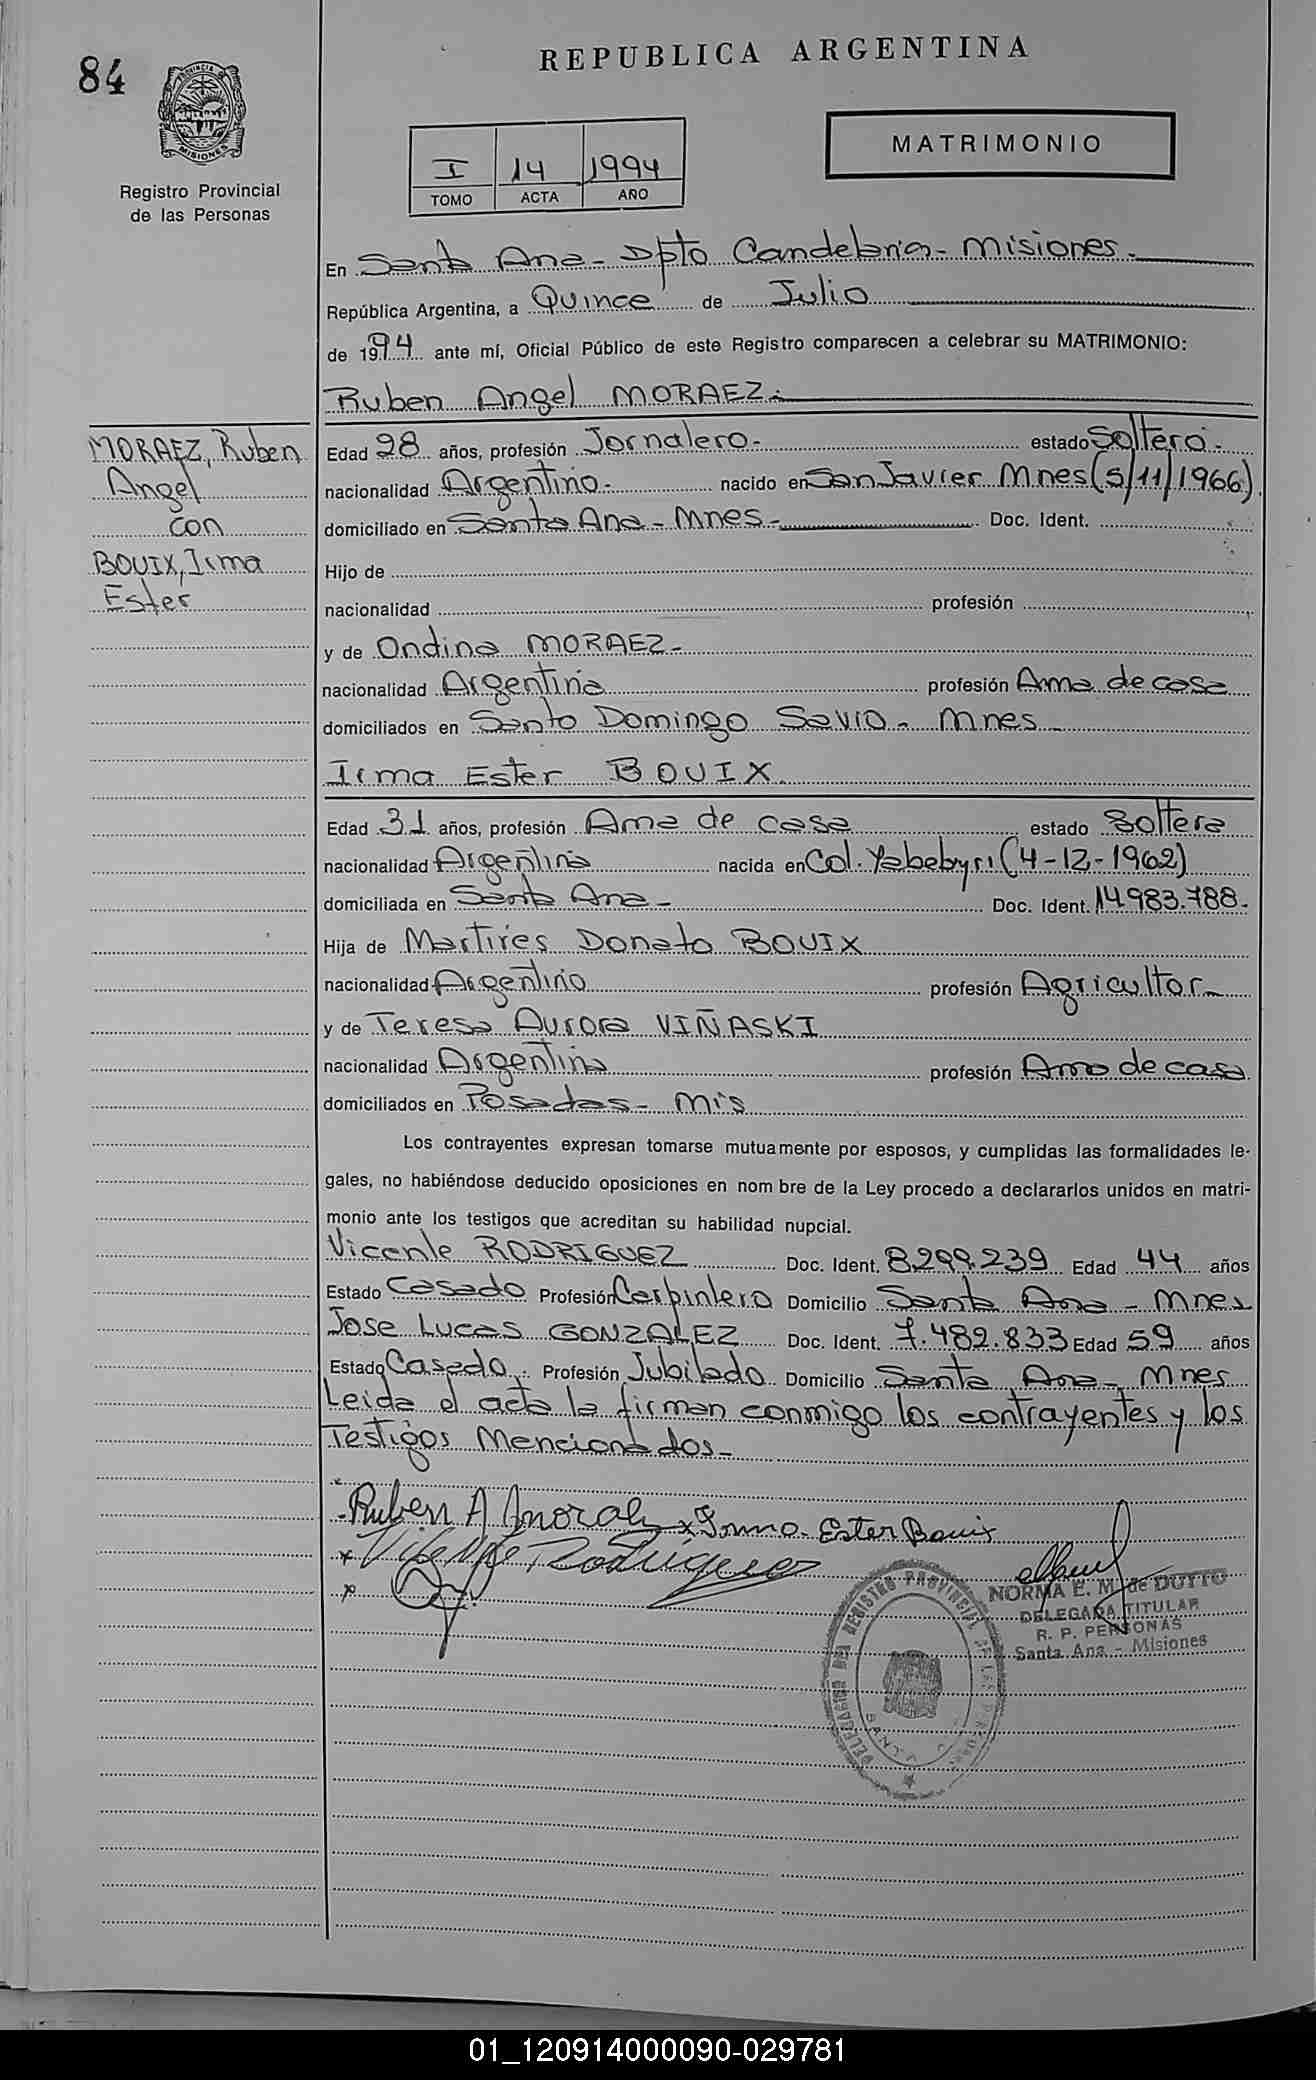 84
REPUBLICA ARGENTINA
PROVINCIA DE MISIONES
Registro Provincial
de las Personas
MATRIMONIO
I 14 1994
TOMO ACTA AÑO
En Santa Ana - Dpto Candelaria - Misiones.
República Argentina, a Quince de Julio
de 1994 ante mí, Oficial Público de este Registro comparecen a celebrar su MATRIMONIO:
Ruben Angel MORAEZ.
MORAEZ, Ruben
Angel
con
BOUIX, Irma
Ester
Edad 28 años, profesión Jornalero.- estado Soltero.-
nacionalidad Argentino.- nacido en San Javier Mnes (5/11/1966)
domiciliado en Santa Ana - Mnes - Doc. Ident.
Hijo de
nacionalidad profesión
y de Ondina MORAEZ -
nacionalidad Argentina profesión Ama de casa
domiciliados en Santo Domingo Savio - Mnes
Irma Ester BOUIX.
Edad 31 años, profesión Ama de casa estado Soltera
nacionalidad Argentina nacida en Col. Yabebyri (4-12-1962)
domiciliada en Santa Ana - Doc. Ident. 14.983.788.-
Hija de Martires Donato BOUIX
nacionalidad Argentino profesión Agricultor -
y de Teresa Aurora VIÑASKI
nacionalidad Argentina profesión Ama de casa
domiciliados en Posadas - Mis
Los contrayentes expresan tomarse mutuamente por esposos, y cumplidas las formalidades le-
gales, no habiéndose deducido oposiciones en nom bre de la Ley procedo a declararlos unidos en matri-
monio ante los testigos que acreditan su habilidad nupcial.
Vicente RODRIGUEZ Doc. Ident. 8.299.239 Edad 44 años
Estado Casado Profesión Carpintero Domicilio Santa Ana - Mnes
Jose Lucas GONZALEZ Doc. Ident. 7.482.833 Edad 59 años
Estado Casado. Profesión Jubilado Domicilio Santa Ana - Mnes
Leida el acta la firman conmigo los contrayentes y los
Testigos Mencionados -
Ruben A Moraez x Irma Ester Bouix
x Vicente Rodriguez
x
NORMA E. M. de DUTTO
DELEGADA TITULAR
R. P. PERSONAS
Santa Ana - Misiones
DELEGACION DEL REGISTRO PROVINCIAL DE LAS PERSONAS
01_120914000090-029781